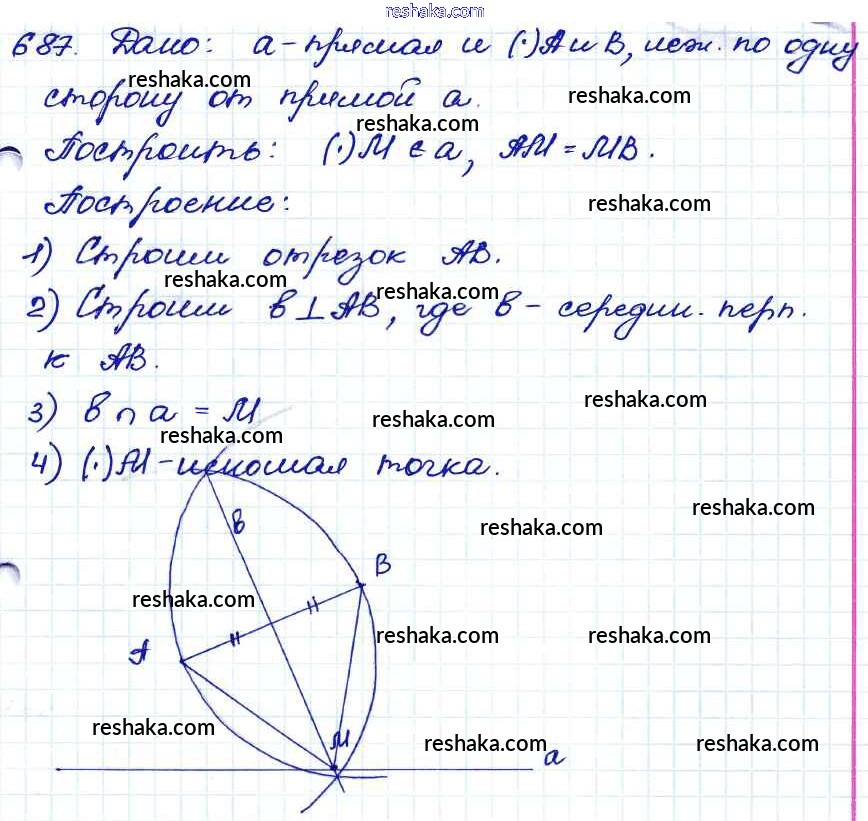 reshaka.com
687. Дано: a - прямая и (·)A и B, леж. по одну
reshaka.com
сторону от прямой a. reshaka.com
reshaka.com
Построить: (·)M ∈ a, AM = MB.
Построение: reshaka.com
1) Строим отрезок AB.
reshaka.com reshaka.com
2) Строим b ⊥ AB, где b - середин. перп.
к AB.
3) b ∩ a = M reshaka.com
reshaka.com reshaka.com
4) (·)M - искомая точка.
b reshaka.com reshaka.com
B
reshaka.com
A reshaka.com reshaka.com
reshaka.com M reshaka.com a reshaka.com